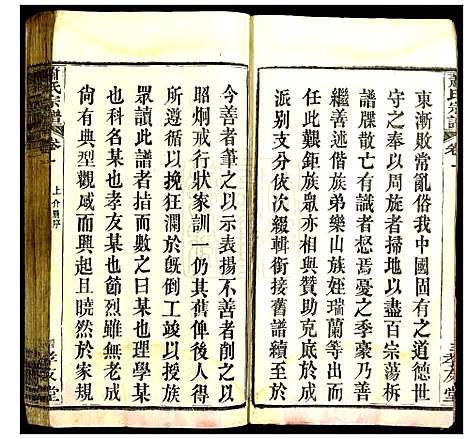 蕭氏宗譜
卷一
東漸敗常亂俗我中國固有之道德世
守之者以周族者掃地以盡百宗蕩析
譜牒散亡有識者惄焉憂之季豪乃善
繼善述偕族弟樂山族姪瑞蘭等出而
任此艱鉅族眾亦相與贊助克底於成
派別支分依次綴輯銜接舊譜續于
孝友堂
今善者筆之以示表揚不善者削之以
昭炯戒行狀家訓一仍其舊俾後人得
所遵循以挽狂瀾於既倒工竣以授族
眾讀此譜者拮而數之曰某也理學某
也科名某也孝友某也節烈雖無老成
尚有典型觀感而興起且曉然於家規
蕭氏宗譜
卷一
孝友堂